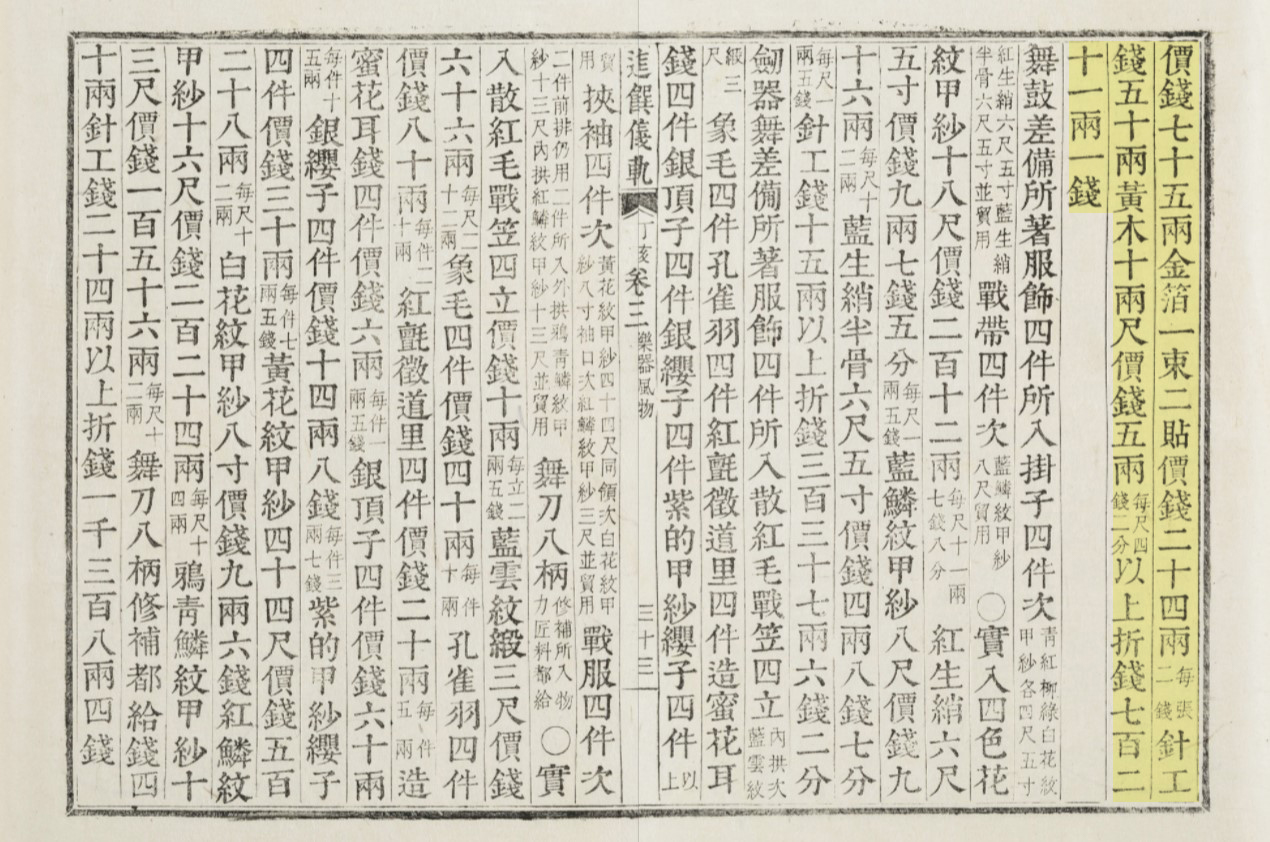 價錢七十五兩金箔一束二貼價錢二十四兩每張二錢針工
錢五十兩黃木十兩尺價錢五兩每尺四錢二分以上折錢七百二
十一兩一錢
舞鼓差備所著服飾四件所入掛子四件次青紅柳綠白花紋甲紗各四尺五寸
紅生綃六尺五寸藍生綃半骨六尺五寸並貿用戰帶四件次藍鱗紋甲紗八尺貿用○實入四色花
紋甲紗十八尺價錢二百十二兩每尺十一兩七錢八分紅生綃六尺
五寸價錢九兩七錢五分每尺一兩五錢藍鱗紋甲紗八尺價錢九
十六兩每尺十二兩藍生綃半骨六尺五寸價錢四兩八錢七分
每尺一兩五錢針工錢十五兩以上折錢三百三十七兩六錢二分
劒器舞差備所著服飾四件所入散紅毛戰笠四立內拱次藍雲紋
緞三尺象毛四件孔雀羽四件紅氈徵道里四件造蜜花耳
錢四件銀頂子四件銀纓子四件紫的甲紗纓子四件以上
進饌儀軌 丁亥卷三 樂器風物 三十三
貿用挾袖四件次黃花紋甲紗四十四尺同領次白花紋甲紗八寸袖口次紅鱗紋甲紗三尺並貿用戰服四件次
二件前排仍用二件所入外拱鴉青鱗紋甲紗十三尺內拱紅鱗紋甲紗十三尺並貿用舞刀八柄修補所入物力匠料都給○實
入散紅毛戰笠四立價錢十兩每立二兩五錢藍雲紋緞三尺價錢
六十六兩每尺二十二兩象毛四件價錢四十兩每件十兩孔雀羽四件
價錢八十兩每件二十兩紅氈徵道里四件價錢二十兩每件五兩造
蜜花耳錢四件價錢六兩每件一兩五錢銀頂子四件價錢六十兩
每件十五兩銀纓子四件價錢十四兩八錢每件三兩七錢紫的甲紗纓子
四件價錢三十兩每件七兩五錢黃花紋甲紗四十四尺價錢五百
二十八兩每尺十二兩白花紋甲紗八寸價錢九兩六錢紅鱗紋
甲紗十六尺價錢二百二十四兩每尺十四兩鴉青鱗紋甲紗十
三尺價錢一百五十六兩每尺十二兩舞刀八柄修補都給錢四
十兩針工錢二十四兩以上折錢一千三百八兩四錢